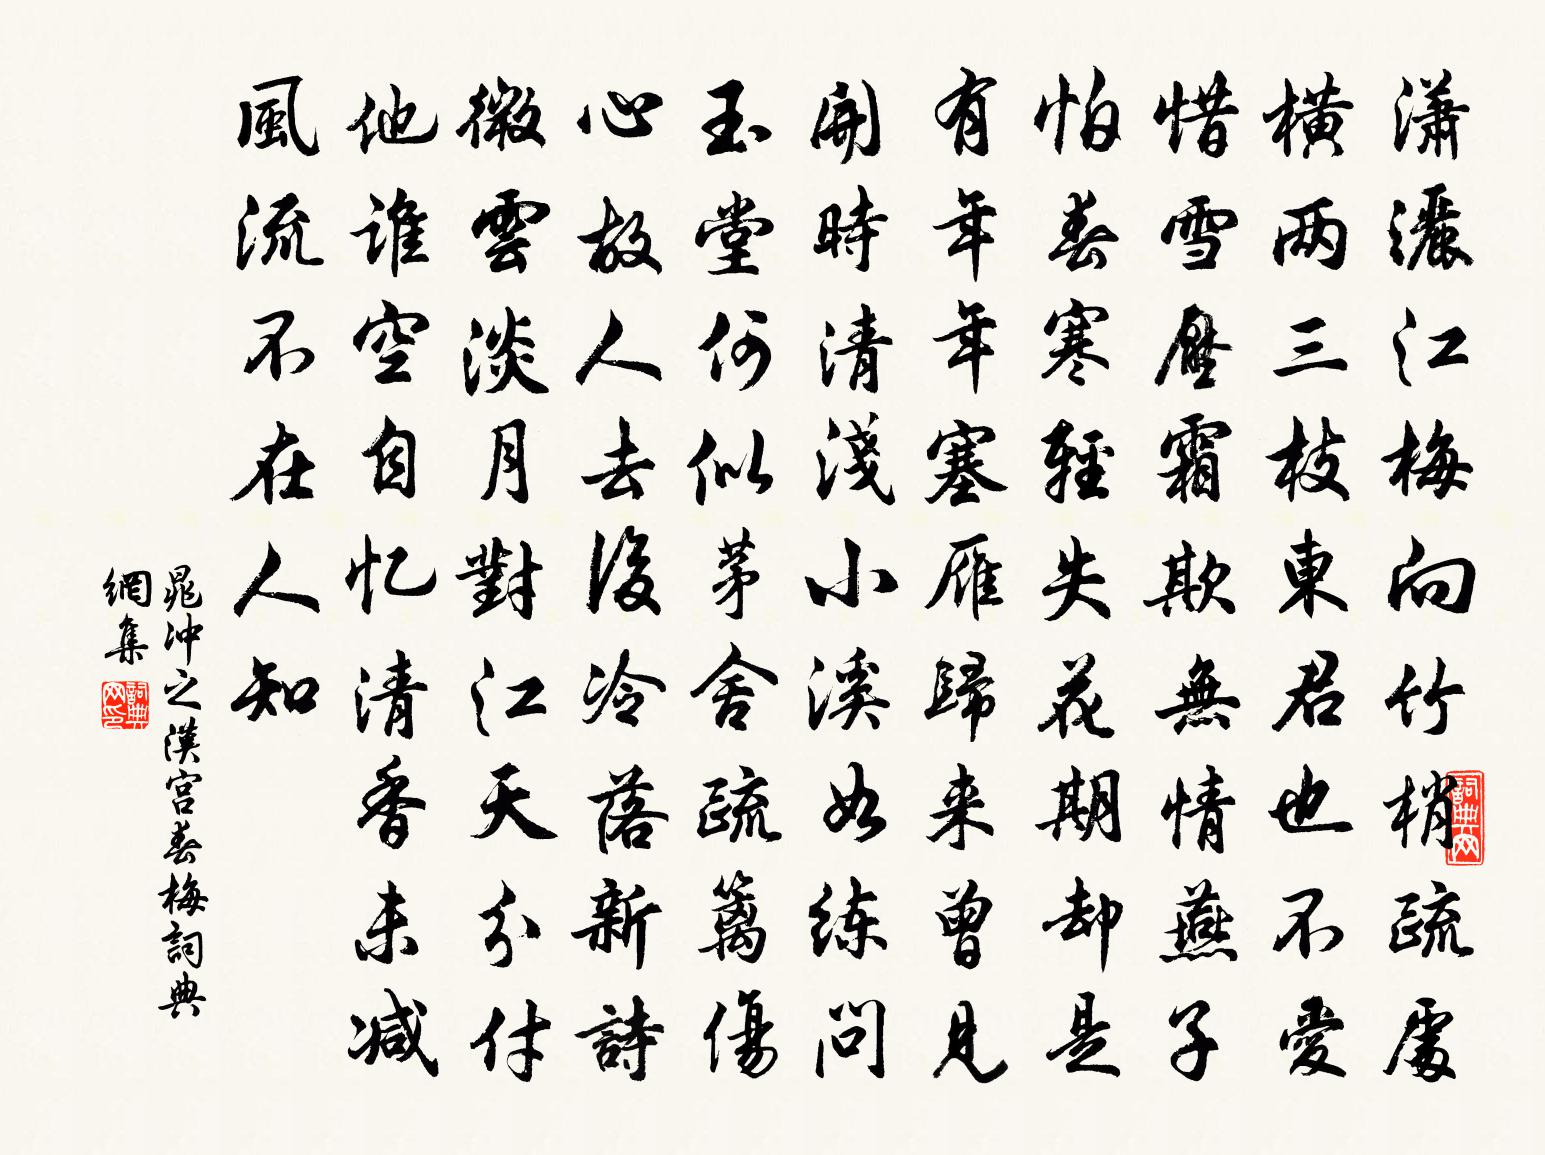 瀟灑江梅向竹梢疏處
橫两三枝東君也不愛
惜雪壓霜欺無情燕子
怕春寒輕失花期却是
有年年塞雁歸来曾見
開時清淺小溪如练問
玉堂何似茅舍疏籬傷
心故人去後冷落新詩
微雲淡月對江天分付
他谁空自忆清香未减
風流不在人知
晁冲之漢宫春梅詞典
網集
詞典网
詞典网印